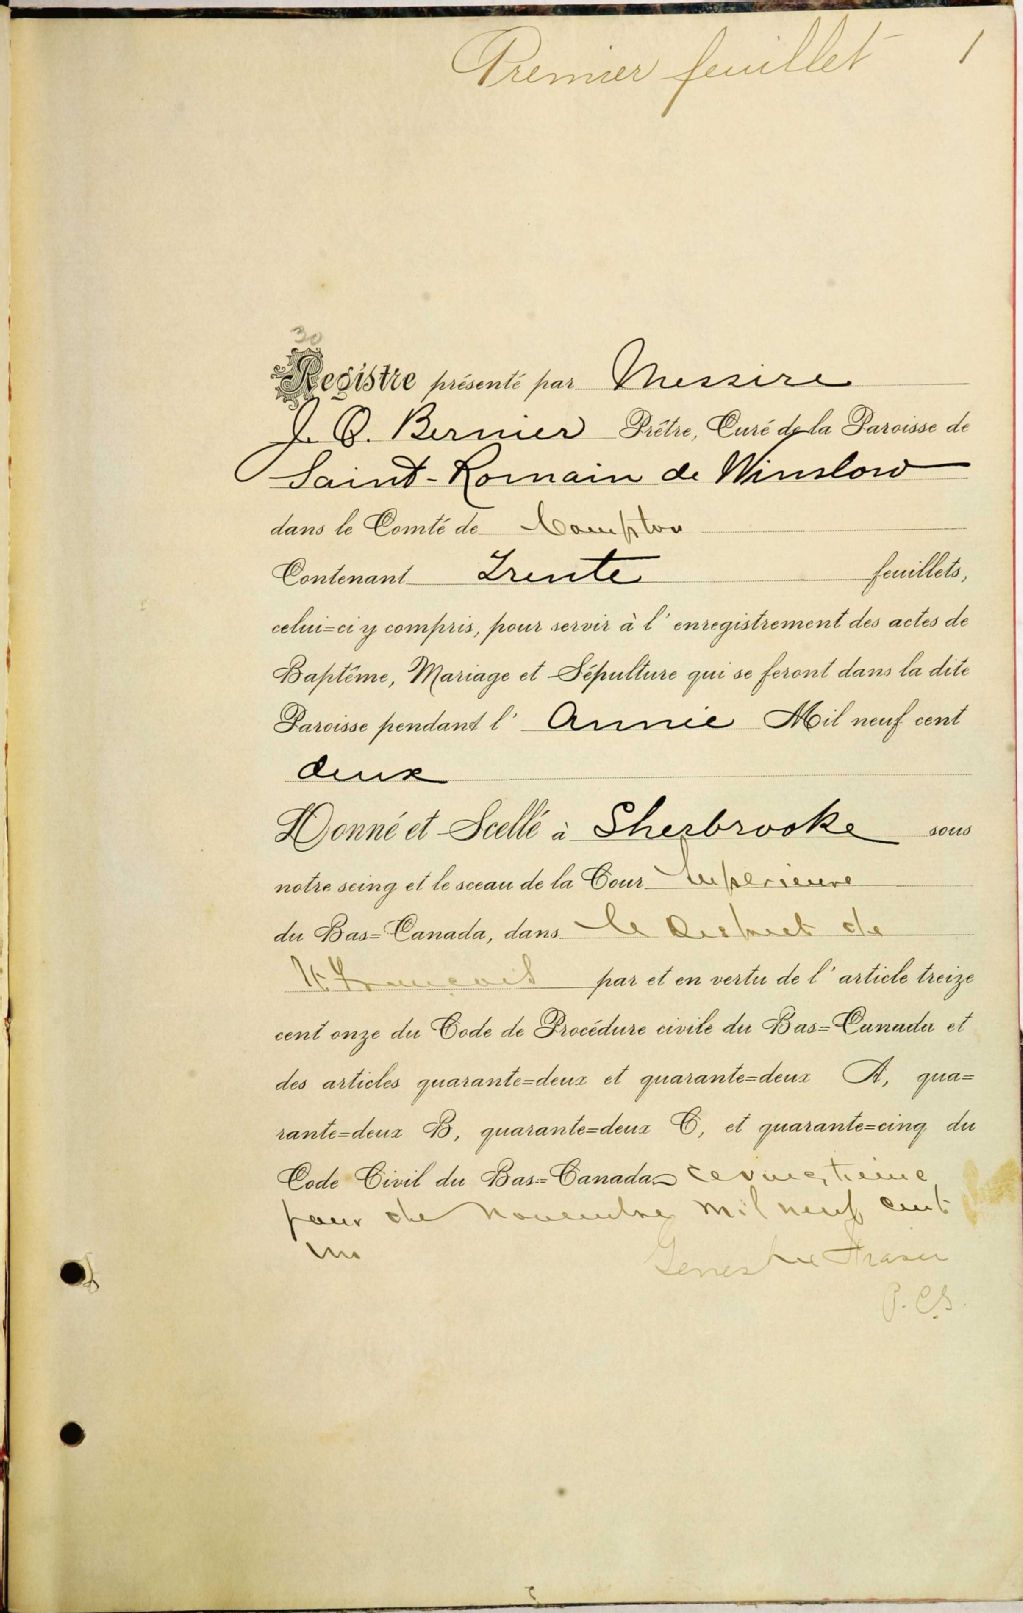 Premier feuillet 1
30
Registre présenté par Messire
J. O. Bernier Prêtre, Curé de la Paroisse de
Saint-Romain de Winslow
dans le Comté de Compton
Contenant Trente feuillets,
celui=ci y compris, pour servir à l'enregistrement des actes de
Baptême, Mariage et Sépulture qui se feront dans la dite
Paroisse pendant l'Année Mil neuf cent
deux
Donné et Scellé à Sherbrooke sous
notre seing et le sceau de la Cour Supérieure
du Bas=Canada, dans le District de
St François par et en vertu de l'article treize
cent onze du Code de Procédure civile du Bas=Canada et
des articles quarante=deux et quarante=deux A, qua=
rante=deux B, quarante=deux C, et quarante=cinq du
Code Civil du Bas=Canada ce
jour de Novembre mil neuf cent
un
Fraser
P. C. S.